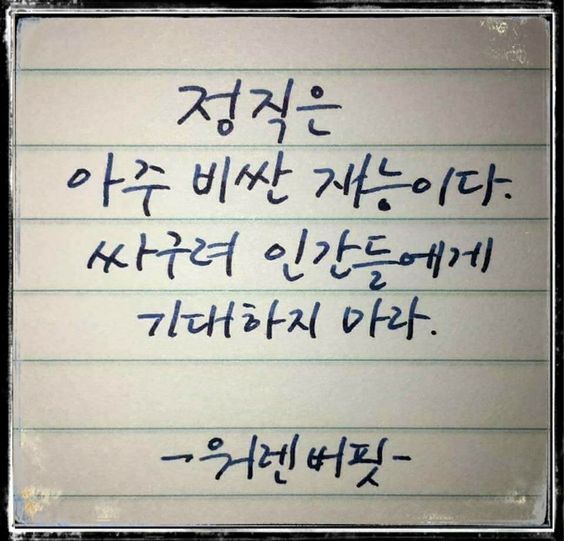 정직은
아주 비싼 재능이다.
싸구려 인간들에게
기대하지 마라.
-워렌버핏-